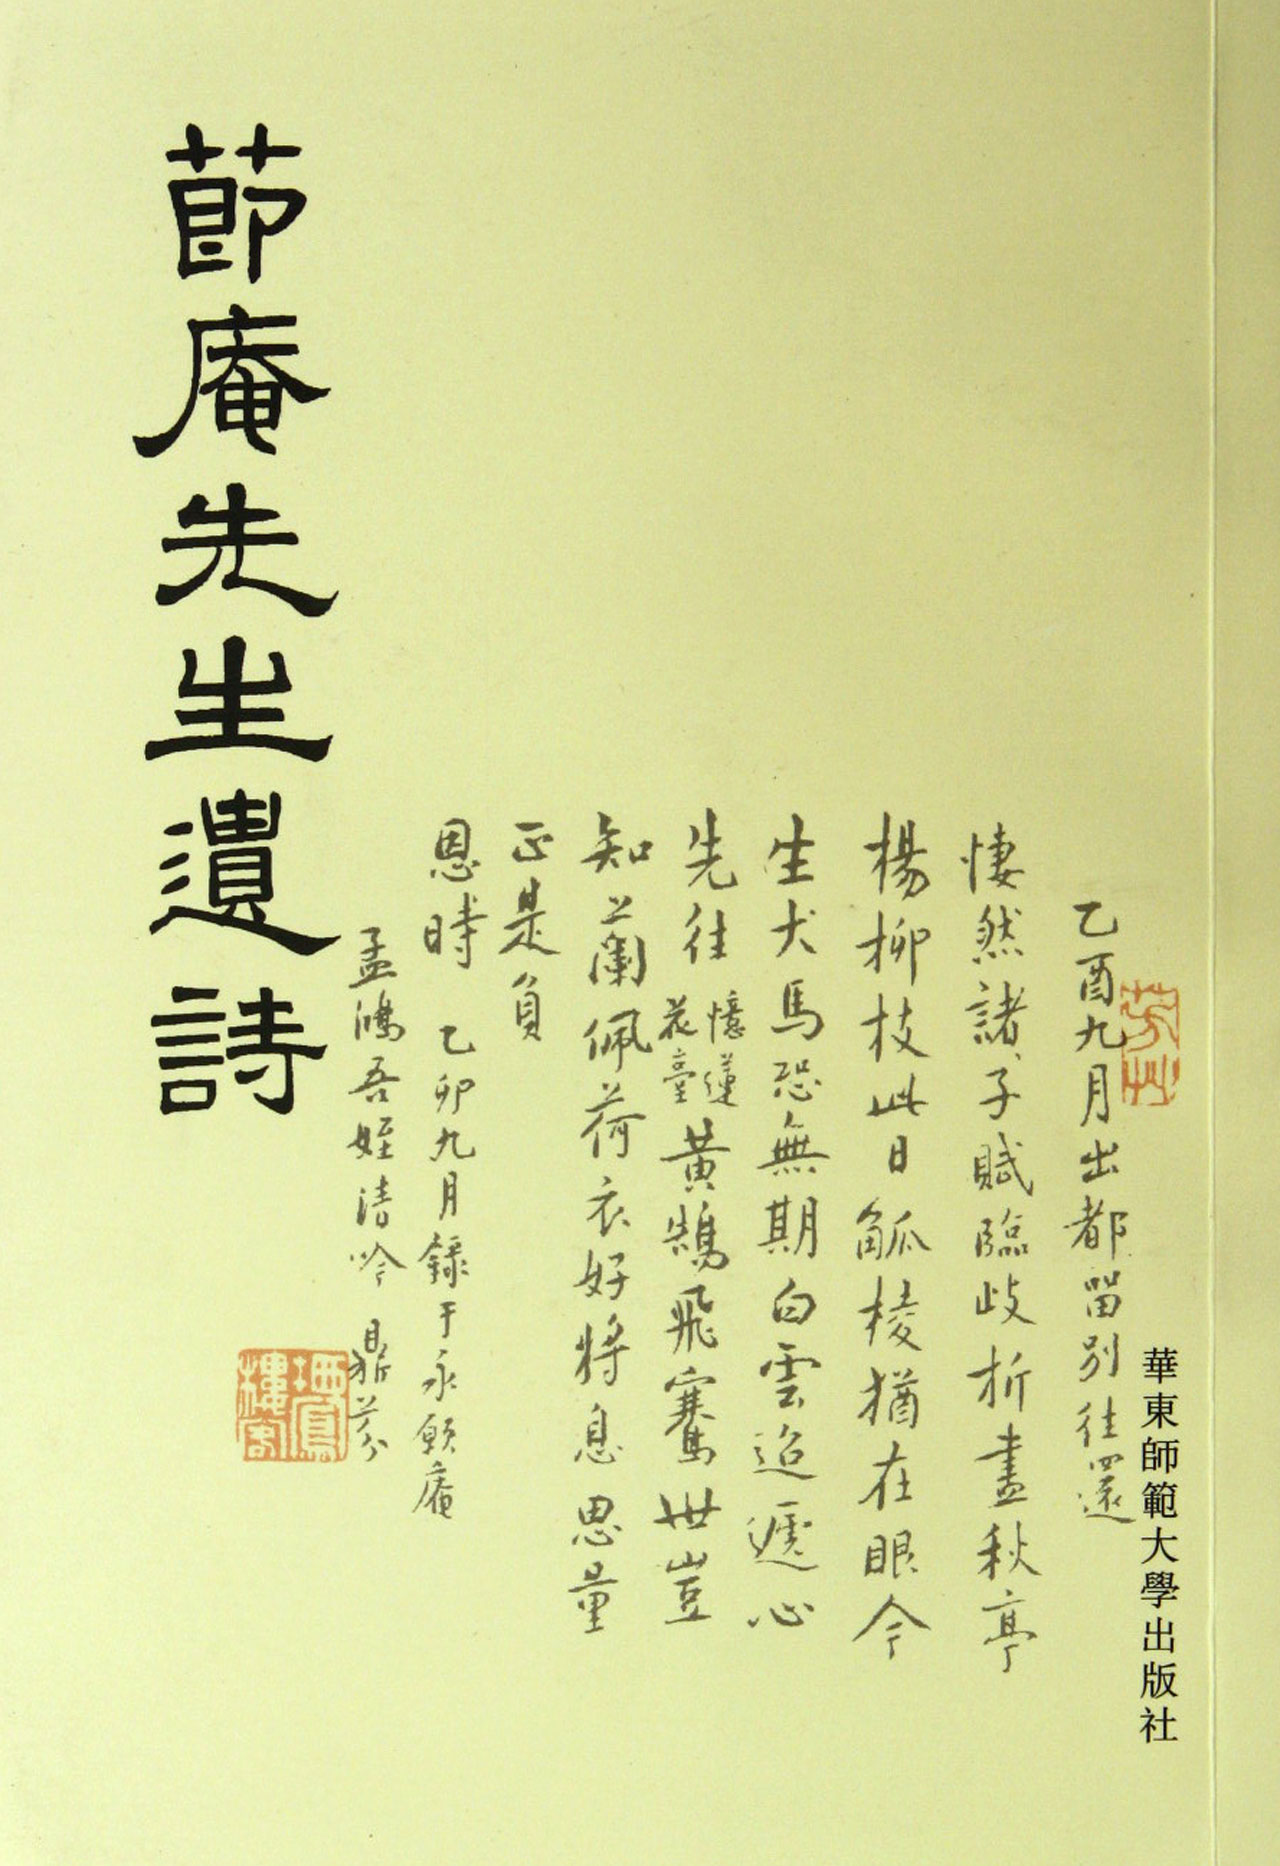 華東師範大學出版社
芳艸
乙酉九月出都留別往還
悽然諸子賦臨歧折盡秋亭
楊柳枝此日觚棱猶在眼今
生犬馬恐無期白雲迢遞心
先往憶蓮花臺黃鵠飛騫世豈
知蘭佩荷衣好將息思量
正是負
恩時 乙卯九月錄于永願庵
孟鴻吾姪清吟 鼎芬
栖鳳樓客
莭庵先生遺詩